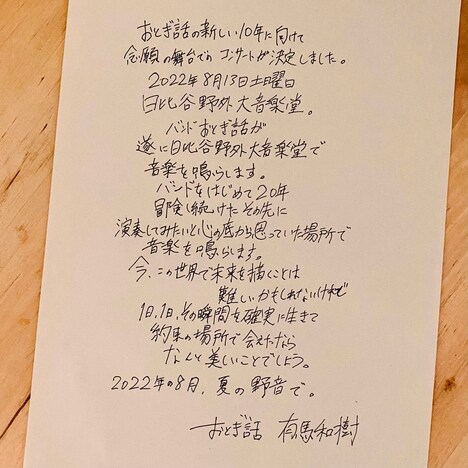 おとぎ話の新しい10年に向けて
念願の舞台でのコンサートが決定しました。
2022年8月13日土曜日
日比谷野外大音楽堂。
バンドおとぎ話が
遂に日比谷野外大音楽堂で
音楽を鳴らします。
バンドをはじめて20年
冒険し続けたその先に
演奏してみたいと心の底から思っていた場所で
音楽を鳴らします。
今、この世界で未来を描くことは
難しいかもしれないけれど
1日、1日、その瞬間を確実に生きて
約束の場所で会えたなら
なんと美しいことでしょう。
2022年の8月、夏の野音で。
おとぎ話 有馬和樹